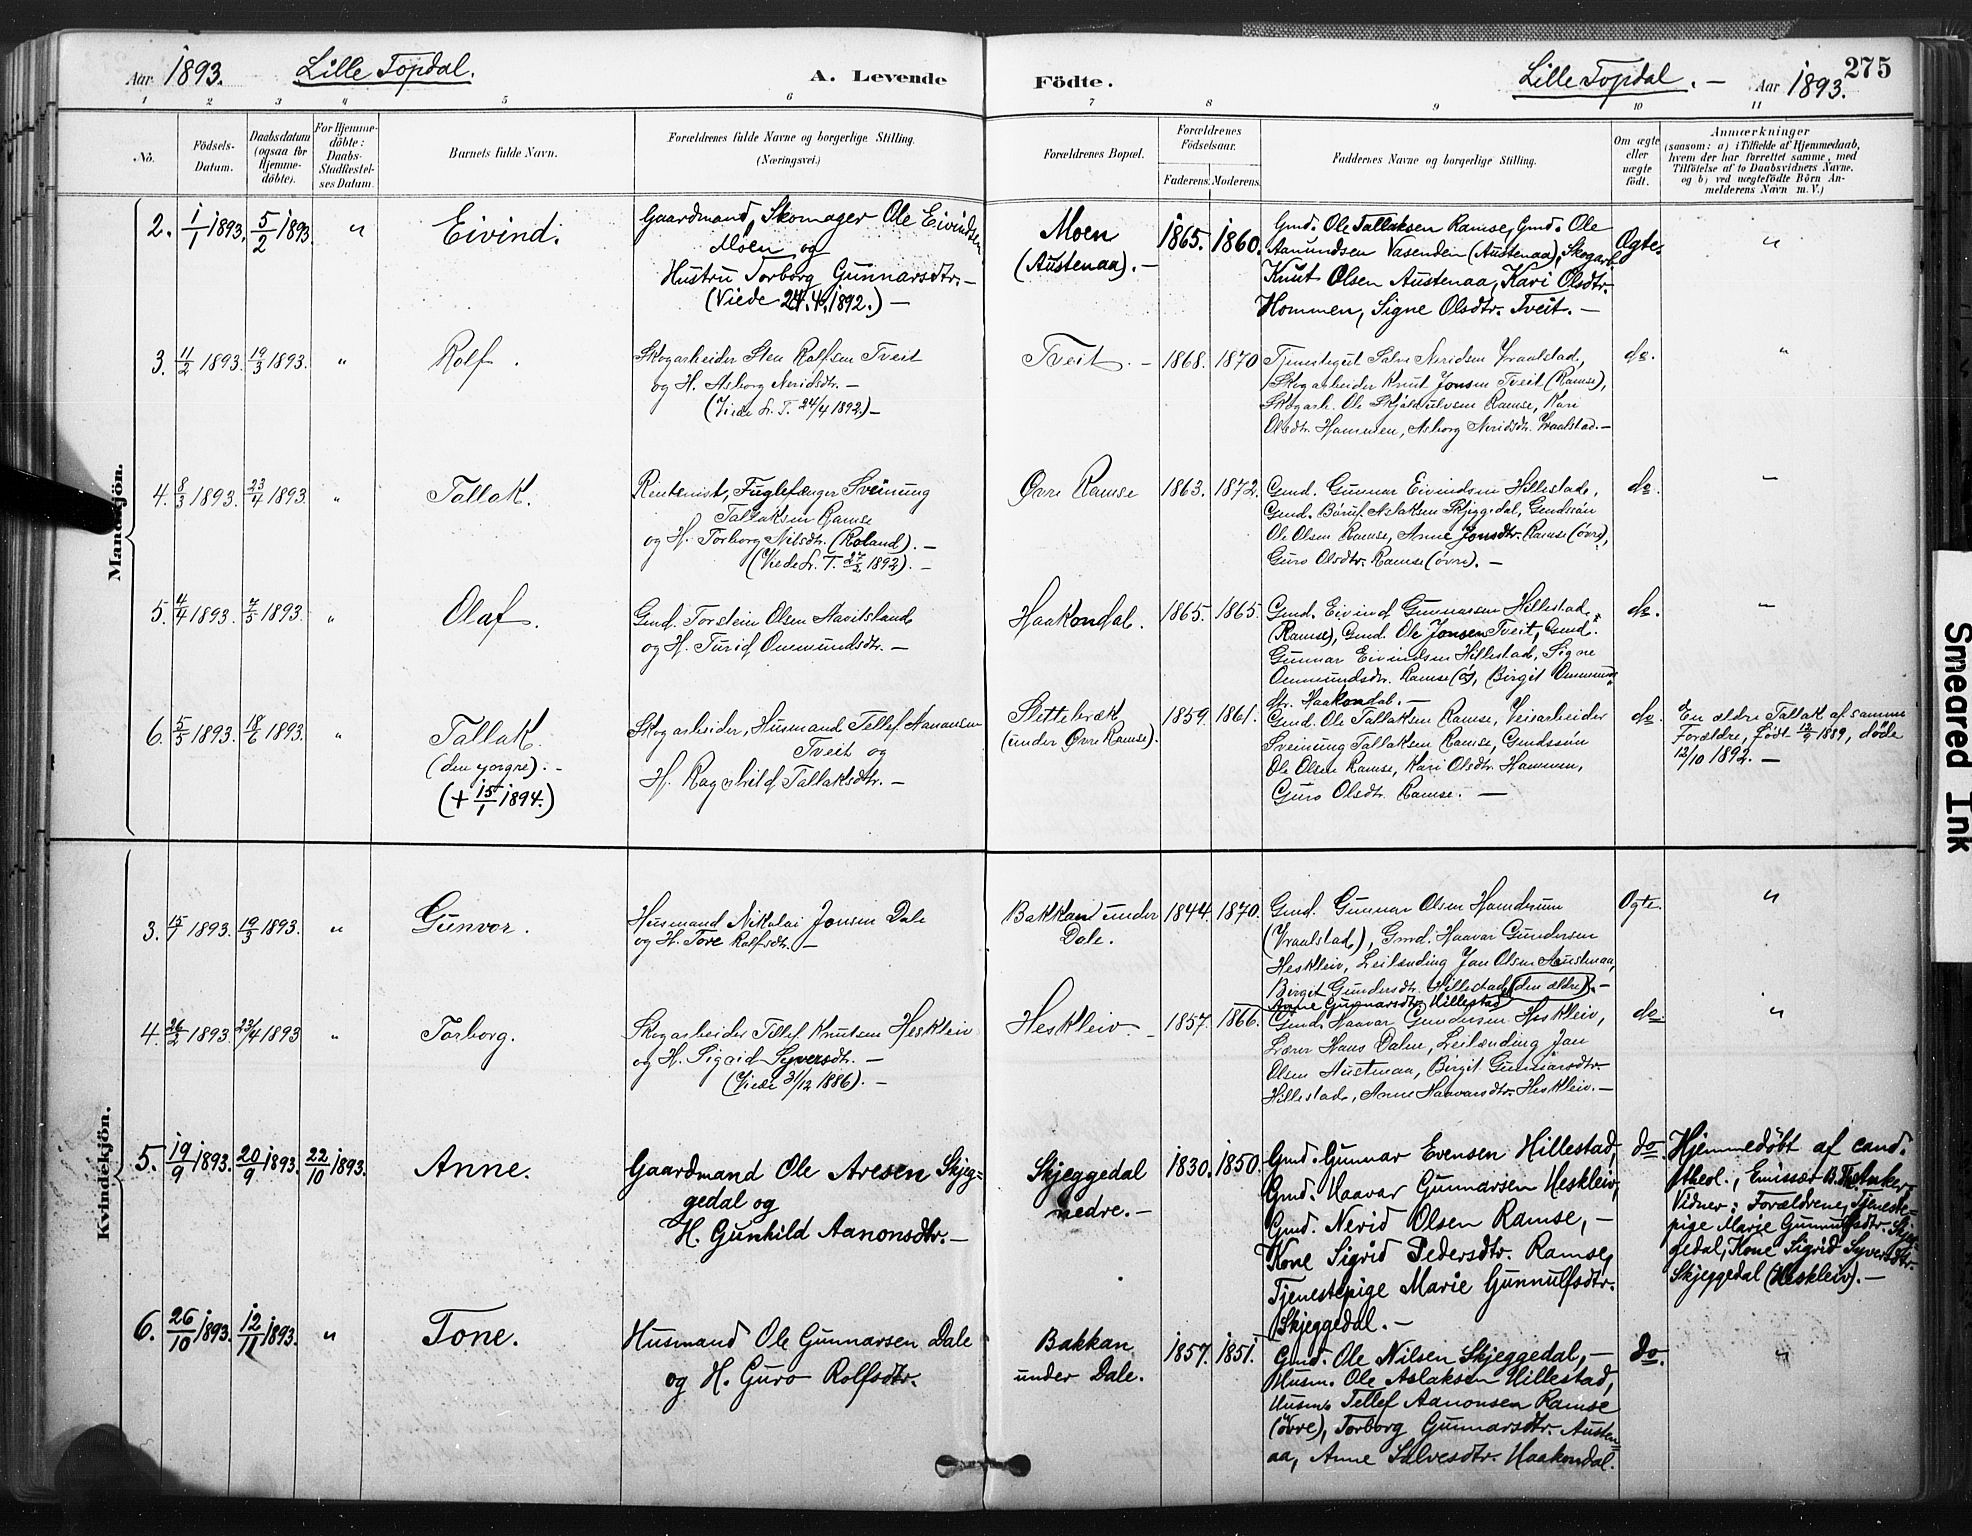 Aar 1893. Lille Topdal. A. Levende Födte. Lille Topdal. — Aar 1893. 275
1 2 3 4 5 6 7 8 9 10 11
No.
Födsels-
Datum.
Daabsdatum
(ogsaa for
Hjemme-
döbte).
For Hjemme-
döbte:
Daabs-
Stadfæstel-
ses Datum.
Barnets fulde Navn.
Forældrenes fulde Navne og borgerlige Stilling.
(Næringsvei.)
Forældrenes Bopæl.
Forældrenes
Födselsaar.
Faderens. Moderens.
Faddernes Navne og borgerlige Stilling.
Om ægte
eller
uægte
födt.
Anmærkninger
(saasom: a) i Tilfælde af Hjemmedaab,
hvem der har forrettet samme, med
Tilföielse af to Daabsvidners Navne,
og b) ved uægtefödte Börn An-
melderens Navn m. V.)
Mandkjön.
2. 1/1 1893. 5/2 1893. " Eivind.
Gaardmand, Skomager Ole Eivindsen
Moen og
Hustru Torborg Gunnarsdtr. —
(Viede 24.4.1892.) —
Moen
(Austenaa). —
1865. 1860.
Gmd. Ole Tallaksen Ramse, Gmd. Ole
Aanundsen Vasenden (Austenaa), Skogarb.
Knut Olsen Austenaa, Kari Olsdtr.
Hommen, Signe Olsdtr. Tveit. —
Ægte. "
3. 11/2 1893. 19/3 1893. " Rolf.
Skogarbeider Sten Rolfsen Tveit
og H. Asborg Neridsdtr. —
(Viede L. T. 24/4 1892.) —
Tveit. — 1868. 1870
Tjenestegut Salve Neridsen Vraalstad,
Skogarbeider Knut Jonsen Tveit (Ramse),
Skogarb. Ole Skjøldulvsen Ramse, Kari
Olsdtr. Hammen, Asborg Neridsdtr. Vraalstad. —
do. "
4. 8/3 1893. 23/4 1893. " Tallak.
Rentenist, Fuglefænger Sveinung
Tallaksen Ramse
og H. Torborg Nilsdtr. (Roland). —
(Viede L. T. 27/2 1892). —
Øvre Ramse 1863. 1872.
Gmd. Gunnar Eivindsen Hillestad,
Gmd. Børuf Aslaksen Skjeggedal, Gmdsøn
Ole Olsen Ramse, Anne Jonsdtr. Ramse (øvre),
Guro Olsdtr. Ramse (øvre). —
do. —
5. 4/4 1893. 7/5 1893. " Olaf.
Gmd. Torstein Olsen
og H. Turid Ommundsdtr. —
Haakondal. 1865. 1865.
Gmd. Eivind Gunnarsen Hillestad
(Ramse), Gmd. Ole Jonsen Tveit, Gmd.
Gunnar Eivindsen Hillestad, Signe
Ommundsdtr. Ramse (ø), Birgit Ommunds-
dtr. Haakondal. —
do. —
6. 5/5 1893. 18/6 1893. " Tallak.
(den yngre). —
(+ 15/1 1894.)
Skogarbeider, Husmand Tellef Aanonsen
Tveit og
H. Ragnhild Tallaksdtr. —
Slettebræk
(under Øvre Ramse).
1859. 1861.
Gmd. Ole Tallaksen Ramse, Veiarbeider
Sveinung Tallaksen Ramse, Gmdssøn
Ole Olsen Ramse, Kari Olsdtr. Hammen,
Guro Olsdtr. Ramse. —
do.
En ældre Tallak af samme
Forældre, født 12/9 1889, døde
12/10 1892. —
Kvindekjön.
3. 15/1 1893. 19/3 1893. " Gunvor.
Husmand Nikolai Jonsen Dale
og H. Tore Rolfsdtr. —
Bakkan under
Dale.
1844. 1870.
Gmd. Gunnar Olsen
(Vraalstad), Gmd. Haavar Gundersen
Heskleiv, Leilænding Jan Olsen Austenaa,
Birgit Gundersdtr. Hillestad (den ældre). —
Anne Gunnarsdtr. Hillestad
Ægte. "
4. 26/2 1893. 23/4 1893 " Torborg.
Skogarbeider Tellef Knutsen Heskleiv
og H. Sigrid Syversdtr. —
(Viede 3/12 1886). —
Heskleiv — 1857. 1866.
Gmd. Haavar Gundersen Heskleiv,
Lærer Hans Dalen, Leilænding Jan
Olsen Austenaa, Birgit Gunnarsdtr.
Hillestad, Anne Haavarsdtr. Heskleiv. —
do. "
5. 19/9 1893. 20/9 1893. 22/10 1893. Anne.
Gaardmand Ole Aresen Skjeg-
gedal og
H. Gunhild Aanonsdtr. —
Skjeggedal
nedre. —
1830. 1850.
Gmd. Gunnar Evensen Hillestad,
Gmd. Haavar Gunnarsen Heskleiv,
Gmd. Nerid Olsen Ramse, —
Kone Sigrid Pedersdtr. Ramse,
Tjenestepige Marie Gunnulfsdtr.
Skjeggedal. —
do.
Hjemmedøbt af cand.
theol., Emissær B. Th. Anker.
Vidner: Forældrene, Tjeneste-
pige Marie Gunnulfsdtr. Skjeg-
gedal, Kone Sigrid Syversdtr.
Skjeggedal (Heskleiv). —
6. 26/10 1893. 12/11 1893. " Tone.
Husmand Ole Gunnarsen Dale
og H. Guro Rolfsdtr.
Bakkan
under Dale.
1857. 1851.
Gmd. Ole Nilsen Skjeggedal, —
Husm. Ole Aslaksen Hillestad,
Husm. Tellef Aanonsen Ramse
(øvre), Torborg Gunnarsdtr. Austen-
aa, Anne Salvesdtr. Haakondal.
do. "
Smeared Ink